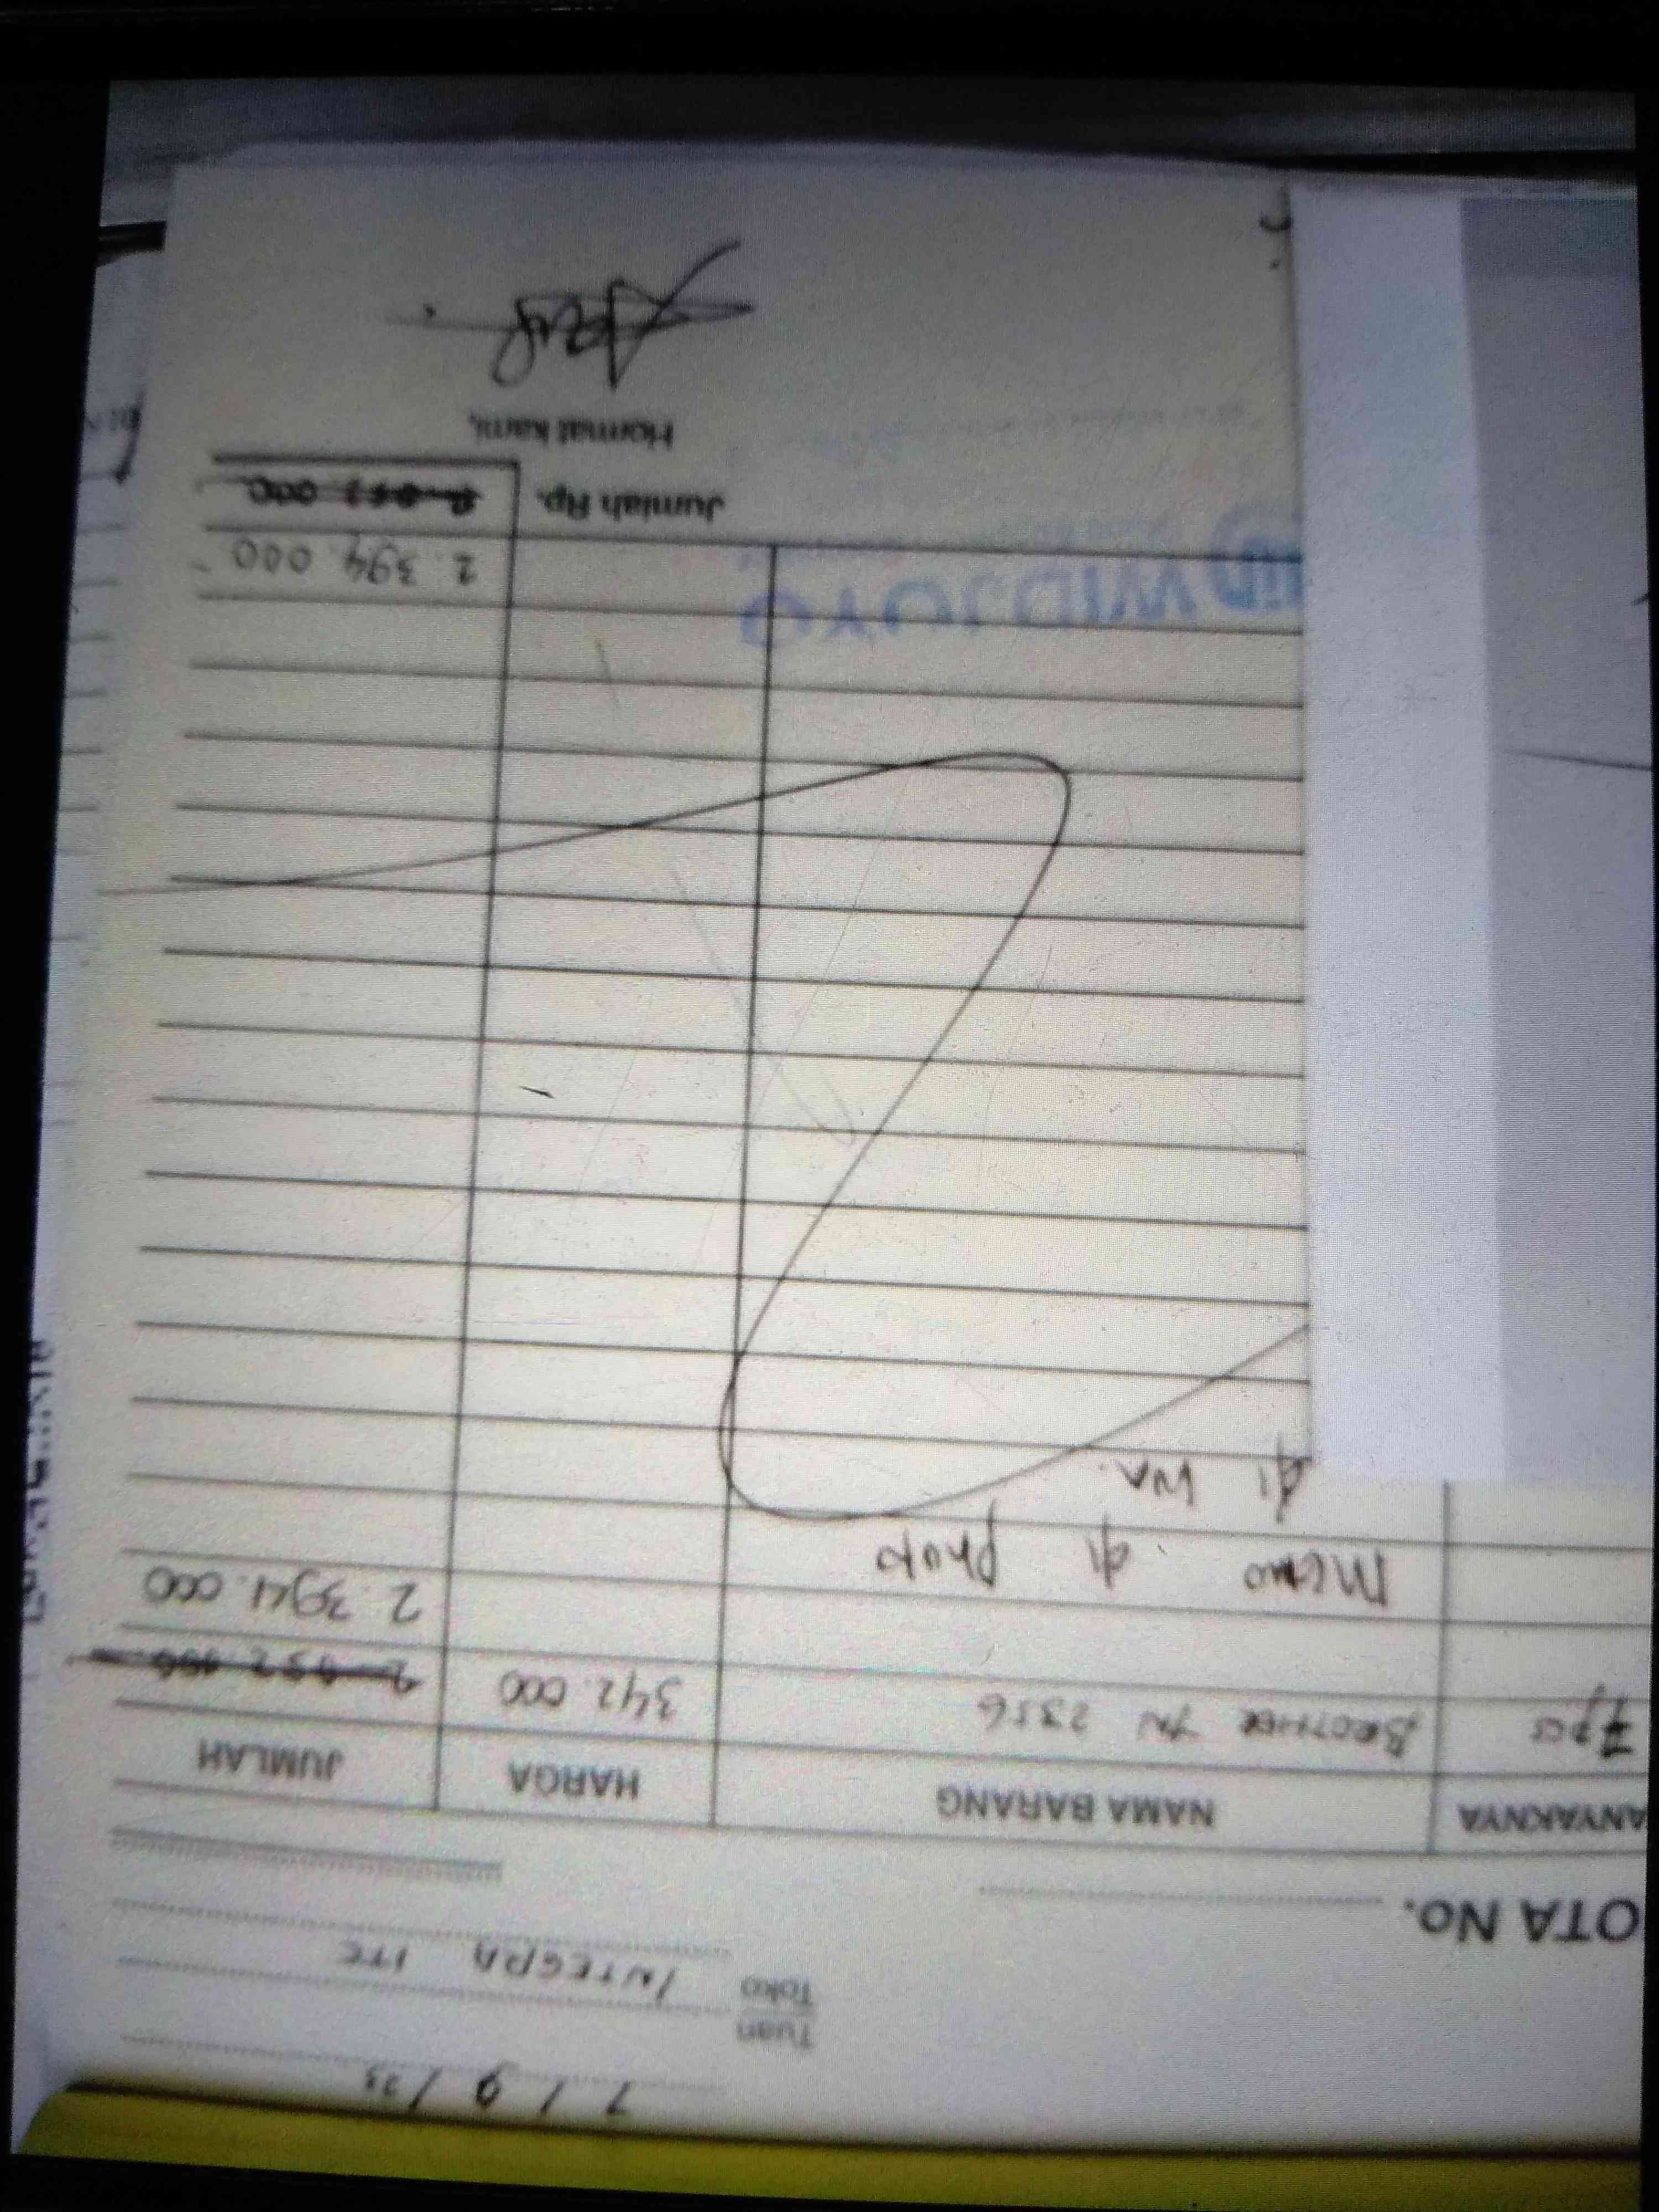 7 / 9 / 23
Tuan
Toko INTEGRA ITC
OTA No.
ANYAKNYA NAMA BARANG HARGA JUMLAH
7 pcs BROTHER TN 2356 342.000
2.394.000
Memo di photo
di WA.
WIDJOYO
2.394.000
Jumlah Rp.
Hormat kami,